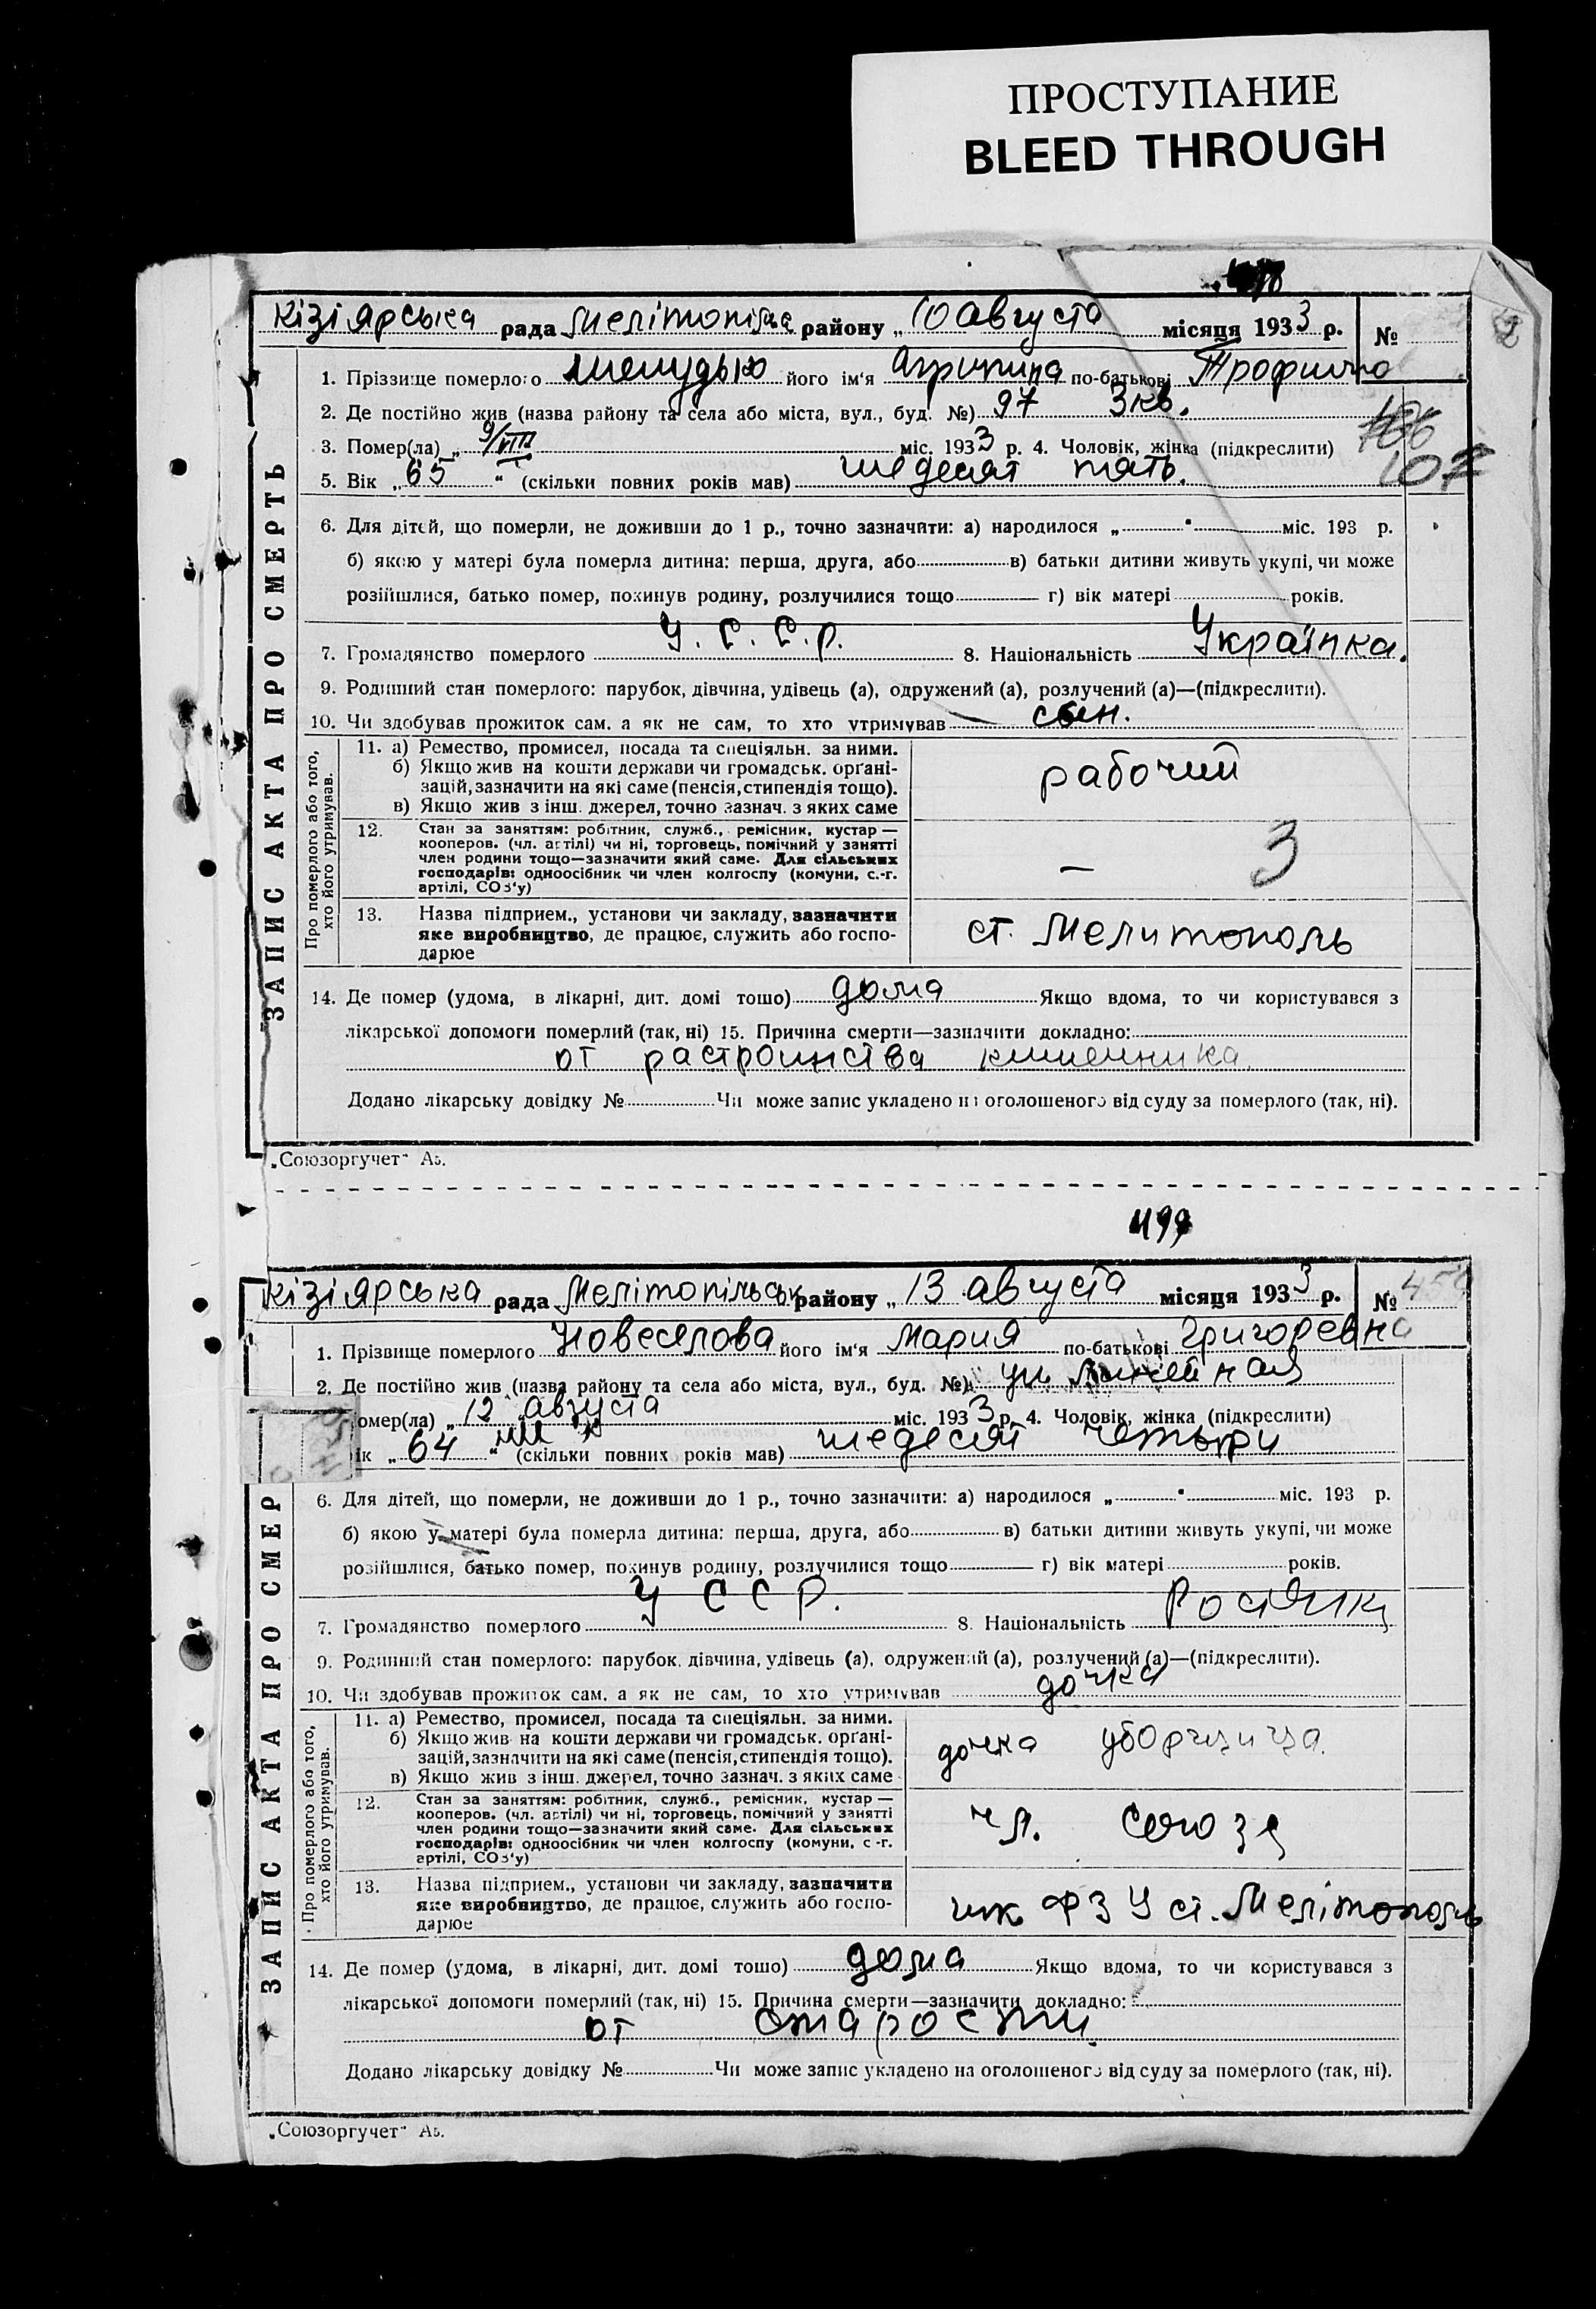 ПРОСТУПАНИЕ
BLEED THROUGH
Кізіярська рада Мелітопільс району „ 10 августа місяця 1933 р. №
ЗАПИС АКТА ПРО СМЕРТЬ
1. Прізвище померлого його ім'я Агрипина по-батькові
2. Де постійно жив (назва району та села або міста, вул., буд. №) 97 3 кв.
3. Помер(ла) „ 9/VIII міс. 1933 р. 4. Чоловік, жінка (підкреслити)
107
5. Вік „ 65 “ (скільки повних років мав) шедесят пять.
6. Для дітей, що померли, не доживши до 1 р., точно зазначити: а) народилося „ “ міс. 193 р.
б) якою у матері була померла дитина: перша, друга, або в) батьки дитини живуть укупі, чи може
розійшлися, батько помер, покинув родину, розлучилися тощо г) вік матері років.
7. Громадянство померлого У. С. С. р. 8. Національність Українка.
9. Родинний стан померлого: парубок, дівчина, удівець (а), одружений (а), розлучений (а)—(підкреслити).
10. Чи здобував прожиток сам, а як не сам, то хто утримував сын.
Про померлого або того, хто його утримував.
11. а) Ремество, промисел, посада та спеціяльн. за ними.
б) Якщо жив на кошти держави чи громадськ. органі-
зацій, зазначити на які саме (пенсія, стипендія тощо).
в) Якщо жив з інш. джерел, точно зазнач. з яких саме
рабочий
12. Стан за заняттям: робітник, служб., ремісник, кустар —
кооперов. (чл. артілі) чи ні, торговець, помічний у занятті
член родини тощо—зазначити який саме. Для сільських
господарів: одноосібник чи член колгоспу (комуни, с.-г.
артілі, СОЗ'у)
— 3
13. Назва підприєм., установи чи закладу, зазначити
яке виробництво, де працює, служить або госпо-
дарює
ст. Мелитополь
14. Де помер (удома, в лікарні, дит. домі тощо) дома Якщо вдома, то чи користувався з
лікарської допомоги померлий (так, ні) 15. Причина смерти—зазначити докладно:
от растроинства кишечника.
Додано лікарську довідку № Чи може запис укладено на оголошеного від суду за померлого (так, ні).
„Союзоргучет“ Аз.
499
Кізіярська рада Мелітопільськ району „ 13 августа місяця 1933 р. №
ЗАПИС АКТА ПРО СМЕР
1. Прізвище померлого Новеселова його ім'я Мария по-батькові Григоревна
2. Де постійно жив (назва району та села або міста, вул., буд. №) ул Линейная
омер(ла) „ 12 августа міс. 1933 р. 4. Чоловік, жінка (підкреслити)
ік „ 64 “ (скільки повних років мав) шедесят четыри
6. Для дітей, що померли, не доживши до 1 р., точно зазначити: а) народилося „ “ міс. 193 р.
б) якою у матері була померла дитина: перша, друга, або в) батьки дитини живуть укупі, чи може
розійшлися, батько помер, покинув родину, розлучилися тощо г) вік матері років.
7. Громадянство померлого У С С Р. 8. Національність
9. Родинний стан померлого: парубок, дівчина, удівець (а), одружений (а), розлучений (а)—(підкреслити).
10. Чи здобував прожиток сам, а як не сам, то хто утримував дочка
Про померлого або того, хто його утримував.
11. а) Ремество, промисел, посада та спеціяльн. за ними.
б) Якщо жив на кошти держави чи громадськ. органі-
зацій, зазначити на які саме (пенсія, стипендія тощо).
в) Якщо жив з інш. джерел, точно зазнач. з яких саме
дочка уборщица.
12. Стан за заняттям: робітник, служб., ремісник, кустар —
кооперов. (чл. артілі) чи ні, торговець, помічний у занятті
член родини тощо—зазначити який саме. Для сільських
господарів: одноосібник чи член колгоспу (комуни, с.-г.
артілі, СОЗ'у)
чл. союза
13. Назва підприєм., установи чи закладу, зазначити
яке виробництво, де працює, служить або госпо-
дарює
шк ФЗУ ст. Мелітополь
14. Де помер (удома, в лікарні, дит. домі тощо) дома Якщо вдома, то чи користувався з
лікарської допомоги померлий (так, ні) 15. Причина смерти—зазначити докладно:
от старости.
Додано лікарську довідку № Чи може запис укладено на оголошеного від суду за померлого (так, ні).
„Союзоргучет“ Аз.